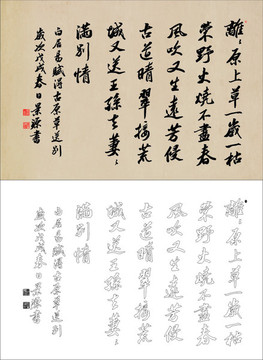 離〻原上草一歲一枯
榮野火燒不盡春
風吹又生遠芳侵
古道晴翠接荒
城又送王孫去萋〻
滿別情
白居易賦得古原草送別
歲次戊戌春日景書
離〻原上草一歲一枯
榮野火燒不盡春
風吹又生遠芳侵
古道晴翠接荒
城又送王孫去萋〻
滿別情
白居易賦得古原草送別
歲次戊戌春日景書